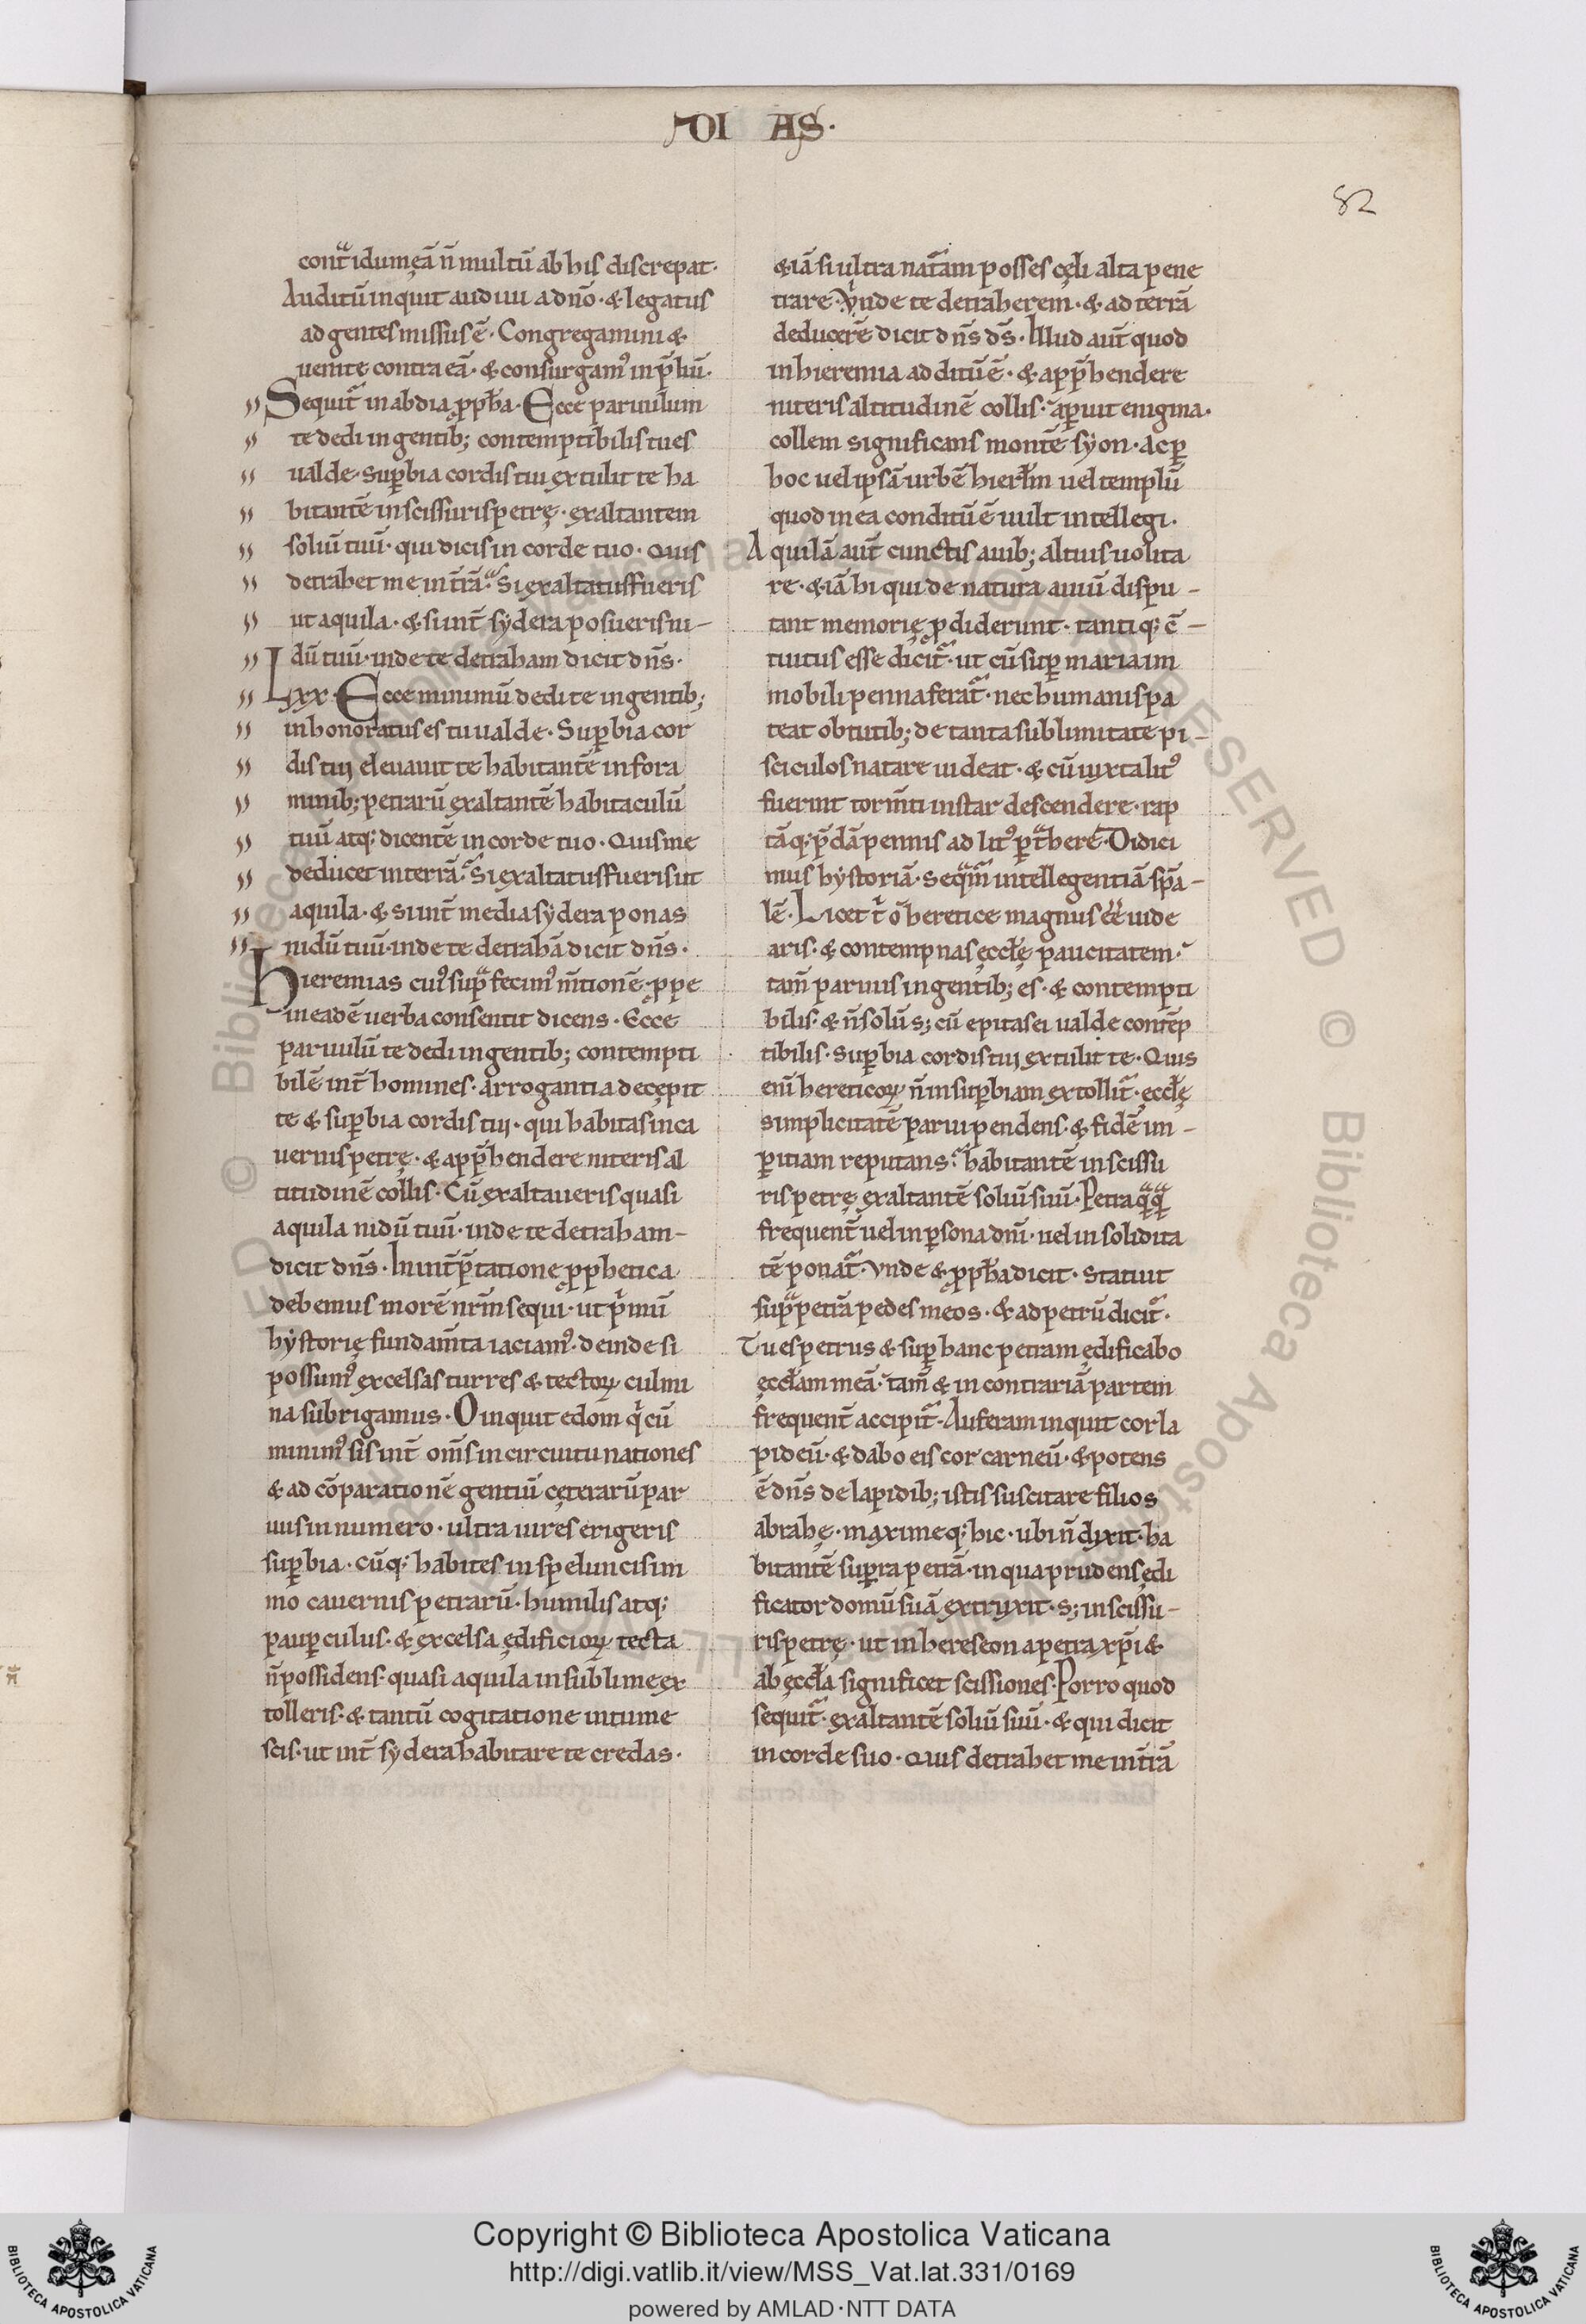 DI AS.
82
contᷓ idumęā n̄ multū ab his discrepat·
Auditū inquit audiui a dn̄o· & legatus
ad gentes missus ē· Congregamini &
uenite contra eā· & consurgam᷒ in p̄liū·
Sequit᷑ in abdia ꝓph̄a· Ecce paruulum
te dedi in gentib; contemptibilis tu es
ualde· Suꝑbia cordis tui extulit te ha
bitantē in scissuris petrę· exaltantem
soliū tuū· qui dicis in corde tuo· Quis
detrahet me in t̄rā? Si exaltatus fueris
ut aquila· & si int̄ sydera posueris ni-
dū tuū· inde te detraham dicit dn̄s·
Lxx· Ecce minimū dedi te in gentib;
inhonoratus es tu ualde· Suꝑbia cor
dis tui eleuauit te habitantē in fora
minib; petrarū exaltantē habitaculū
tuū atq; dicentē in corde tuo· Quis me
deducet in terrā? Si exaltatus fueris ut
aquila· & si int̄ media sydera ponas
nidū tuū· inde te detrahā dicit dn̄s·
Hieremias cui᷒ supᷓ fecim᷒ m̄tionē· ꝓpe
in eadē uerba consentit dicens· Ecce
paruulū te dedi in gentib; contempti
bilē int̄ homines· arrogantia decępit
te & suꝑbia cordis tui· qui habitas in ca
uernis petrę· & app̄hendere niteris al
titudinē collis· Cū exaltaueris quasi
aquila nidū tuū· inde te detraham-
dicit dn̄s· In int̄p̄tatione ꝓphetica
debemus morē nr̄m sequi· ut pͥmū
hystorię fundam̄ta iaciam᷒· deinde si
possum᷒ excelsas turres & tectoꝝ culmi
na subrigamus· O inquit edom qͥ cū
minim᷒ sis int̄ om̄s in circuitu nationes
& ad cōparationē gentiū cęterarū par
uus in numero· ultra uires erigeris
suꝑbia· cūq; habites in speluncis im
mo cauernis petrarū· humilis atq;
pauꝑculus· & excelsa ędificioꝝ tecta
n̄ possidens· quasi aquila in sublime ex
tolleris· & tantū cogitatione intume
scis· ut int̄ sydera habitare te credas·
&iā si ultra nat᷑am posses cęli alta pene
trare· Vnde te detraherem· & ad terrā
deducerē dicit dn̄s ds̄· Illud aut̄ quod
in hieremia additū ē· & app̄hendere
niteris altitudinē collis· aꝑuit enigma·
collem significans montē syon· ac ꝑ
hoc uel ipsā urbē hierl̄m uel templū
quod in ea conditū ē uult intellegi·
Aquilā aut̄ cunctis auib; altius uolita
re· &iā hi qui de natura auiū dispu-
tant memorię ꝓdiderunt· tantiq; ē-
tuitus esse dicit᷑· ut cū suꝑ maria im
mobili penna ferat᷑· nec humanis pa
teat obtutib; de tanta sublimitate pi-
sciculos natare uideat· & cū iuxta lit᷒
fuerint torm̄ti instar descendere· rap
tāq; p̄dā pennis ad lit᷒ ꝑtᷓhere· Didici
mus hystoriā· seqᷓm᷑ intellegentiā sp̄a-
lē· Licet tͥ o heretice magnus ee᷑ uide
aris· & contempnas ęccl̄ę paucitatem·
tam̄ paruus in gentib; es· & contempti
bilis· & n̄ solū s; cū epitasei ualde contēp
tibilis· Suꝑbia cordis tui extulit te· Quis
eni᷑ hereticoꝝ n̄ in suꝑbiam extollit᷑· ęccl̄ę
simplicitatē parui pendens· & fidē im-
ꝑitiam reputans? habitantē in scissu
ris petrę exaltantē soliū suū· Petra qᷓqᷓ
frequent̄ uel in ꝑsona dn̄i· uel in solidita
tē ponat᷑· Vnde & ꝓph̄a dicit· Statuit
supᷓ petrā pedes meos· & ad petrū dicit᷑·
Tu es petrus & suꝑ hanc petram ędificabo
ęccl̄am meā· tam̄ & in contrariā partem
frequent̄ accipit᷑· Auferam inquit cor la
pideū· & dabo eis cor carneū· & potens
ē dn̄s de lapidib; istis suscitare filios
abrahę· maximeq; hic· ubi n̄ dixit· ha
bitantē supra petrā· in qua prudens ędi
ficator domū suā extruxit· s; in scissu-
ris petrę· ut in hereseon a petra xp̄i &
ab ęccl̄a significet scissiones· Porro quod
sequit᷑· exaltantē soliū suū· & qui dicit
in corde suo· Quis detrahet me in t̄rā
Copyright © Biblioteca Apostolica Vaticana
http://digi.vatlib.it/view/MSS_Vat.lat.331/0169
powered by AMLAD·NTT DATA
BIBLIOTECA APOSTOLICA VATICANA
BIBLIOTECA APOSTOLICA VATICANA